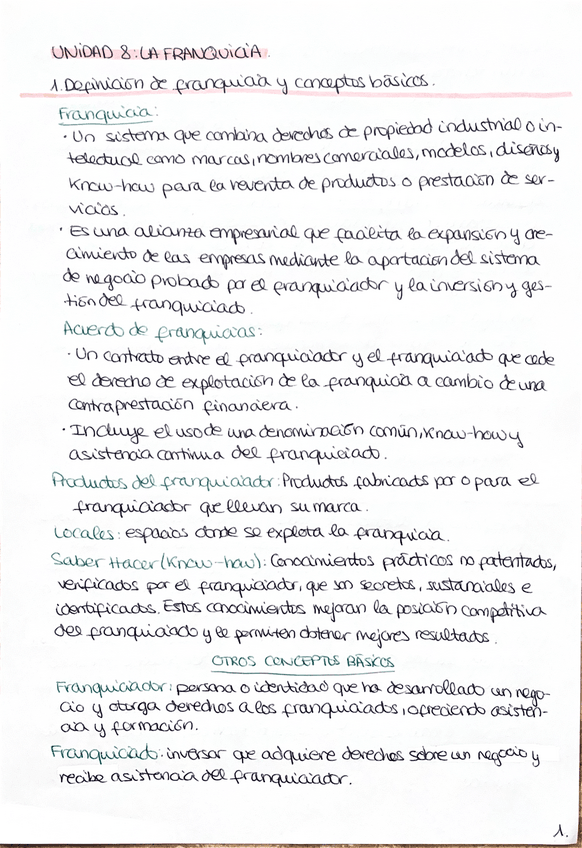 UNIDAD 8: LA FRANQUICIA.
1. Definición de franquicia y conceptos básicos.
Franquicia:
· Un sistema que combina derechos de propiedad industrial o in-
telectual como marcas, nombres comerciales, modelos, diseños y
Know-how para la reventa de productos o prestación de ser-
vicios.
· Es una alianza empresarial que facilita la expansión y cre-
cimiento de las empresas mediante la aportación del sistema
de negocio probado por el franquiciador y la inversión y ges-
tión del franquiciado.
Acuerdo de franquicias:
· Un contrato entre el franquiciador y el franquiciado que cede
el derecho de explotación de la franquicia a cambio de una
contraprestación financiera.
· Incluye el uso de una denominación común, Know-how y
asistencia continua del franquiciado.
Productos del franquiciador: Productos fabricados por o para el
franquiciador que llevan su marca.
Locales: espacios donde se explota la franquicia.
Saber Hacer (Know-how): Conocimientos prácticos no patentados,
verificados por el franquiciador, que son secretos, sustanciales e
identificados. Estos conocimientos mejoran la posición competitiva
del franquiciado y le permiten obtener mejores resultados.
OTROS CONCEPTOS BÁSICOS
Franquiciador: persona o identidad que ha desarrollado un nego-
cio y otorga derechos a los franquiciados, ofreciendo asisten-
cia y formación.
Franquiciado: inversor que adquiere derechos sobre un negocio y
recibe asistencia del franquiciador.
1.